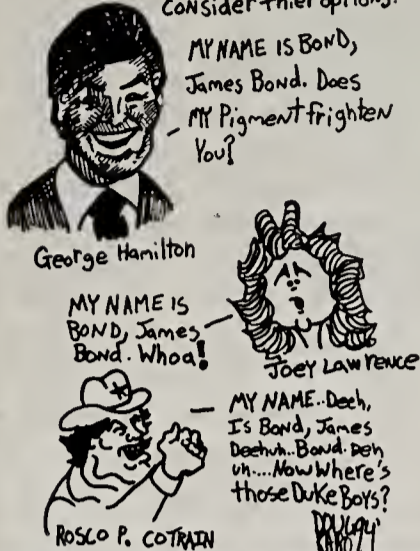 Consider thier options:
MY NAME IS BOND,
James Bond. Does
MY Pigment frighten
You?
George Hamilton
MY NAME IS
BOND, James
Bond. Whoa!
JOEY LAWRENCE
MY NAME..Deeh,
Is Bond, James
Deehuh..Bond. Deh
uh....Now Where's
those Duke Boys?
ROSCO P. COTRAIN